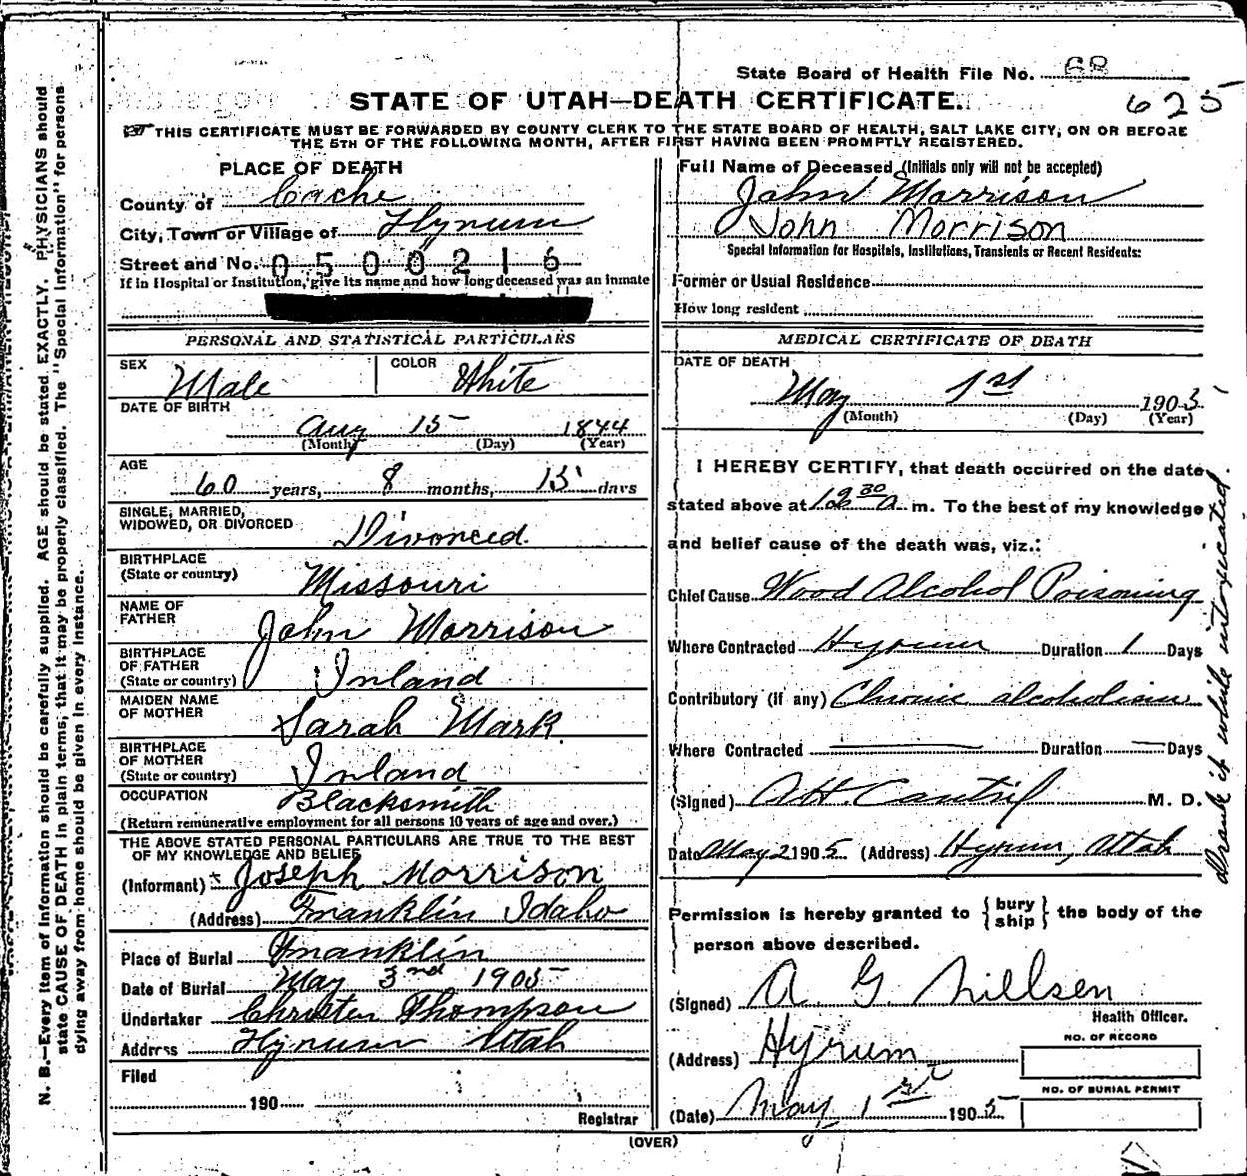 State Board of Health File No. 68
625
STATE OF UTAH—DEATH CERTIFICATE.
THIS CERTIFICATE MUST BE FORWARDED BY COUNTY CLERK TO THE STATE BOARD OF HEALTH, SALT LAKE CITY, ON OR BEFORE
THE 5TH OF THE FOLLOWING MONTH, AFTER FIRST HAVING BEEN PROMPTLY REGISTERED.
PLACE OF DEATH
County of Cache
City, Town or Village of Hyrum
Street and No. 0500216
If in Hospital or Institution, give its name and how long deceased was an inmate
Full Name of Deceased (Initials only will not be accepted)
John Morrison
John Morrison
Special Information for Hospitals, Institutions, Transients or Recent Residents:
Former or Usual Residence
How long resident
PERSONAL AND STATISTICAL PARTICULARS
SEX Male COLOR White
DATE OF BIRTH
Aug 15 1844
(Month) (Day) (Year)
AGE
60 years, 8 months, 15 days
SINGLE, MARRIED,
WIDOWED, OR DIVORCED Divorced.
BIRTHPLACE
(State or country) Missouri
NAME OF
FATHER John Morrison
BIRTHPLACE
OF FATHER
(State or country) Inland
MAIDEN NAME
OF MOTHER Sarah Mark.
BIRTHPLACE
OF MOTHER
(State or country) Inland
OCCUPATION Blacksmith
(Return remunerative employment for all persons 10 years of age and over.)
THE ABOVE STATED PERSONAL PARTICULARS ARE TRUE TO THE BEST
OF MY KNOWLEDGE AND BELIEF
(Informant) Joseph Morrison
(Address) Franklin Idaho
Place of Burial Franklin
Date of Burial May 3nd 1905
Undertaker Christen Thompson
Address Hyrum Utah
Filed
190
Registrar
MEDICAL CERTIFICATE OF DEATH
DATE OF DEATH
May 1st 1905
(Month) (Day) (Year)
I HEREBY CERTIFY, that death occurred on the date
stated above at 12 30 A. m. To the best of my knowledge
and belief cause of the death was, viz.:
Chief Cause Wood Alcohol Poisoning
Where Contracted Hyrum Duration 1 Days
Contributory (if any) Chronic alcoholism
Where Contracted — Duration — Days
(Signed) M. D.
Date May 2 1905. (Address) Hyrum, Utah
Drank it while intoxicated.
Permission is hereby granted to {bury
ship} the body of the
person above described.
(Signed) A G Nillsen
Health Officer.
(Address) Hyrum
NO. OF RECORD
NO. OF BURIAL PERMIT
(Date) May 1st 1905
(OVER)
N. B.—Every item of information should be carefully supplied. AGE should be stated EXACTLY. PHYSICIANS should
state CAUSE OF DEATH in plain terms, that it may be properly classified. The "Special Information" for persons
dying away from home should be given in every instance.